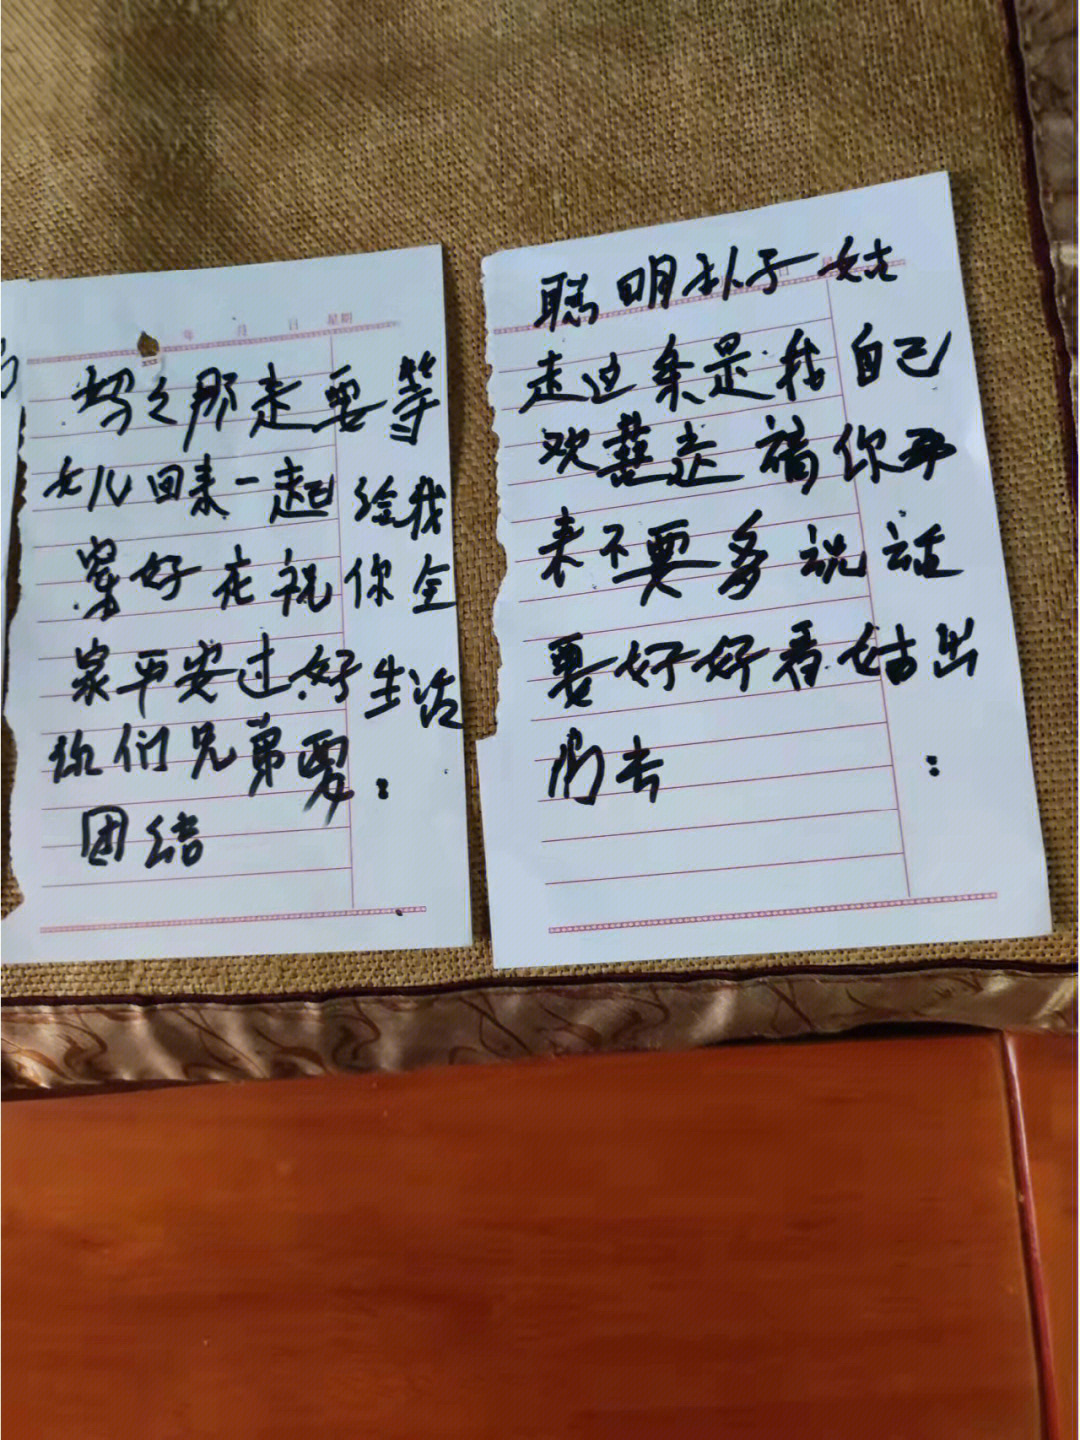 年 月 日 星期
妈之那走要等
女儿回来一起给我
穿好衣祝你全
家平安过好生活
你们兄弟要:
团结
日
聪明 子一姑
走这条是我自己
欢喜走 请你
来不要多说话
要好好看姑出
门去 :